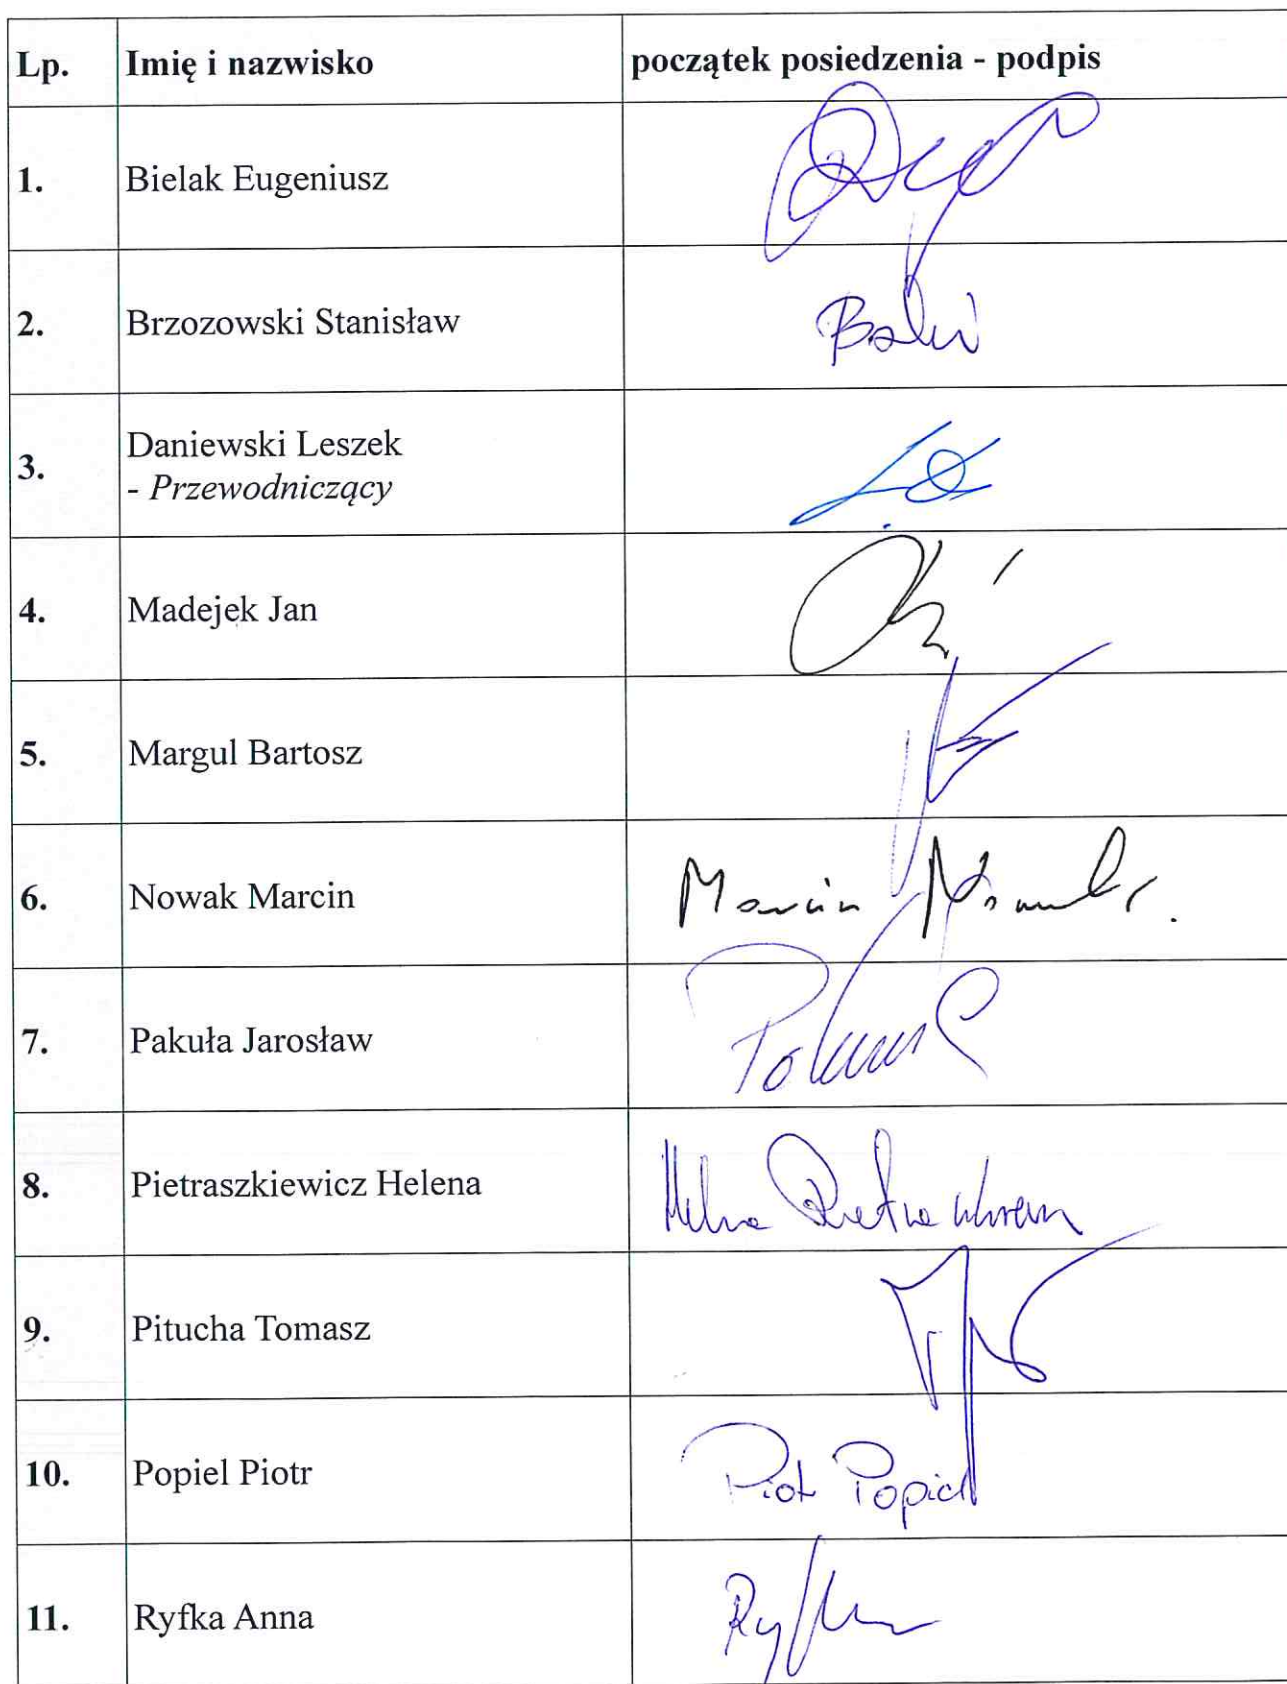 Lp. Imię i nazwisko początek posiedzenia - podpis
1. Bielak Eugeniusz
2. Brzozowski Stanisław
3. Daniewski Leszek
- Przewodniczący
4. Madejek Jan
5. Margul Bartosz
6. Nowak Marcin Marcin Nowak
7. Pakuła Jarosław
8. Pietraszkiewicz Helena Helena
9. Pitucha Tomasz
10. Popiel Piotr Piotr Popiel
11. Ryfka Anna Ryfka